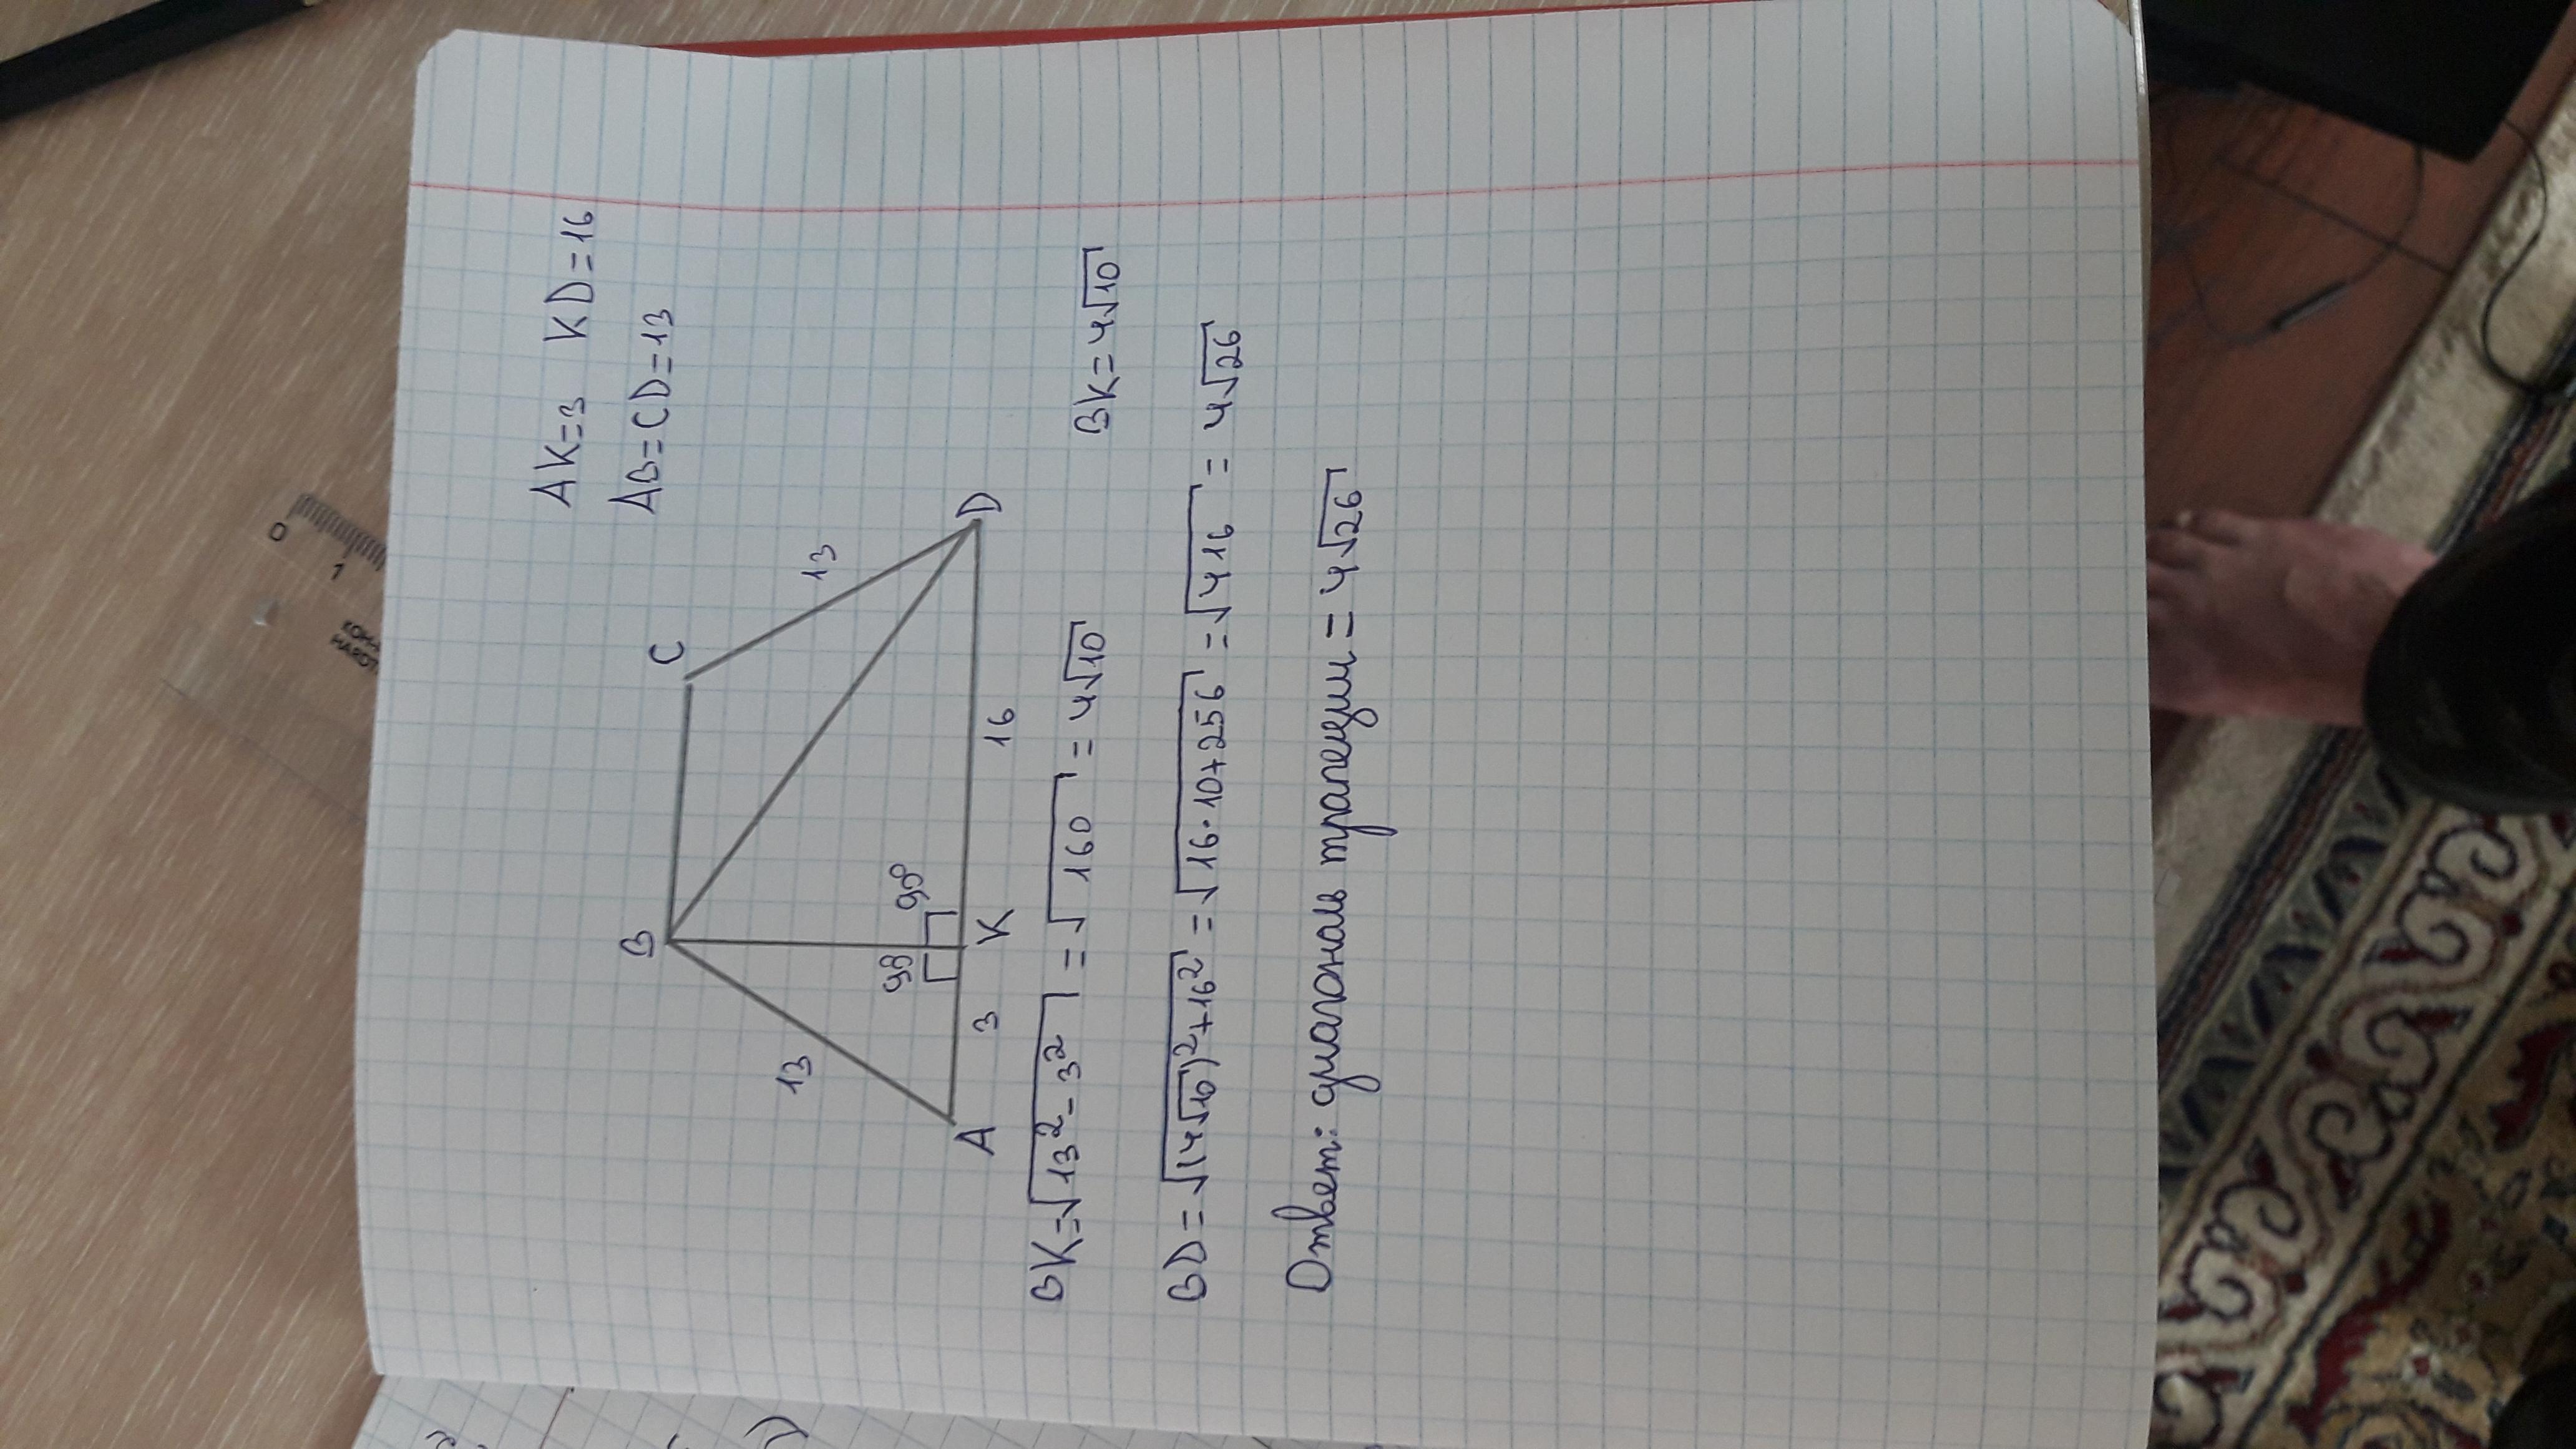 AK=3 KD=16
AB=CD=13
B
C
13
13
90
90°
A
3
K
16
D
BK=√13²-3² = √160 = 4√10 BK=4√10
BD=√(4√10)²+16² = √16·10+256 = √416 = 4√26
Ответ: диагональ трапеции = 4√26
0
1
KOH-I
HARDT